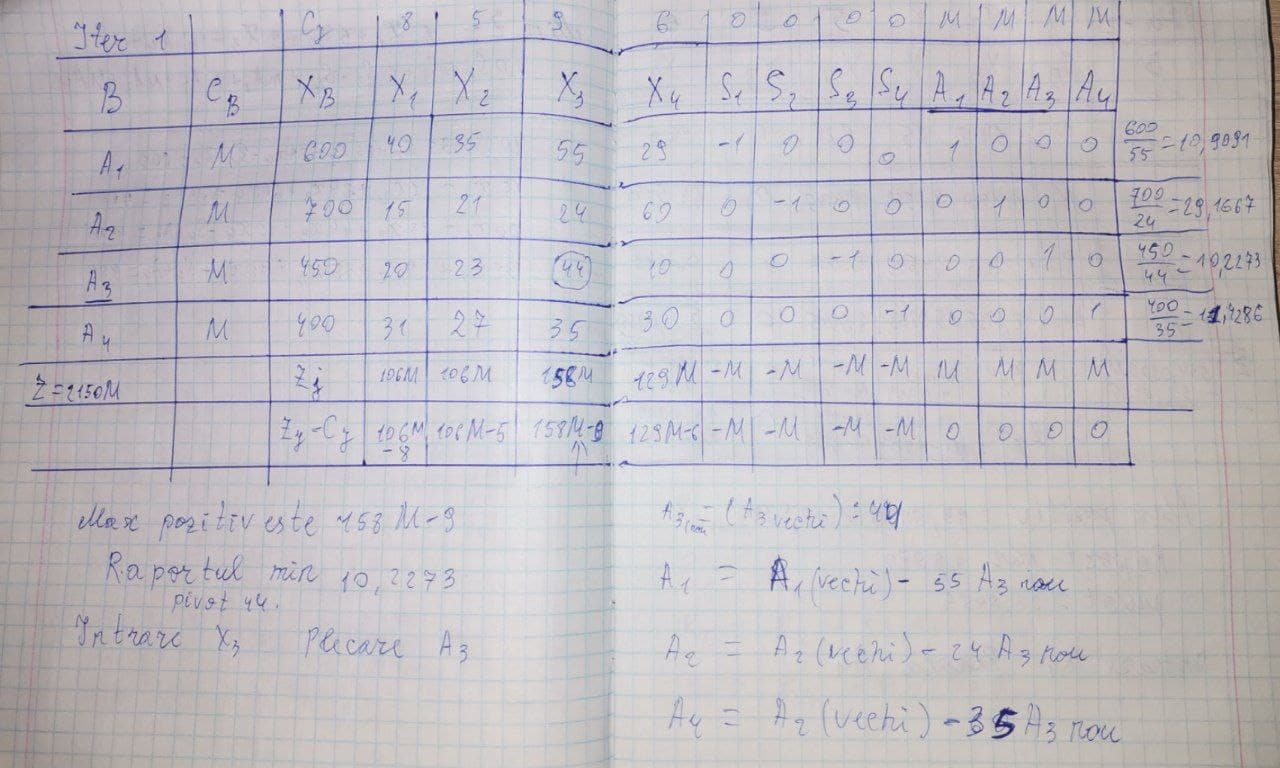 Iter 1 Cj 8 5 9 6 0 0 0 0 M M M M
B CB XB X1 X2 X3 X4 S1 S2 S3 S4 A1 A2 A3 A4
A1 M 600 40 35 55 29 -1 0 0 0 1 0 0 0 600/55 = 10,9091
A2 M 700 15 21 24 60 0 -1 0 0 0 1 0 0 700/24 = 29,1667
A3 M 450 20 23 44 10 0 0 -1 0 0 0 1 0 450/44 = 10,2273
A4 M 400 31 27 35 30 0 0 0 -1 0 0 0 1 400/35 = 11,4286
Z = 2150M Zj 106M 106M 158M 129M -M -M -M -M M M M M
Zj-Cj 106M-8 106M-5 158M-9 129M-6 -M -M -M -M 0 0 0 0
Max pozitiv este 158M-9
Raportul min 10,2273
pivot 44.
Intrare X3 Plecare A3
A3 nou = (A3 vechi) : 44
A1 = A1 (vechi) - 55 A3 nou
A2 = A2 (vechi) - 24 A3 nou
A4 = A2 (vechi) - 35 A3 nou